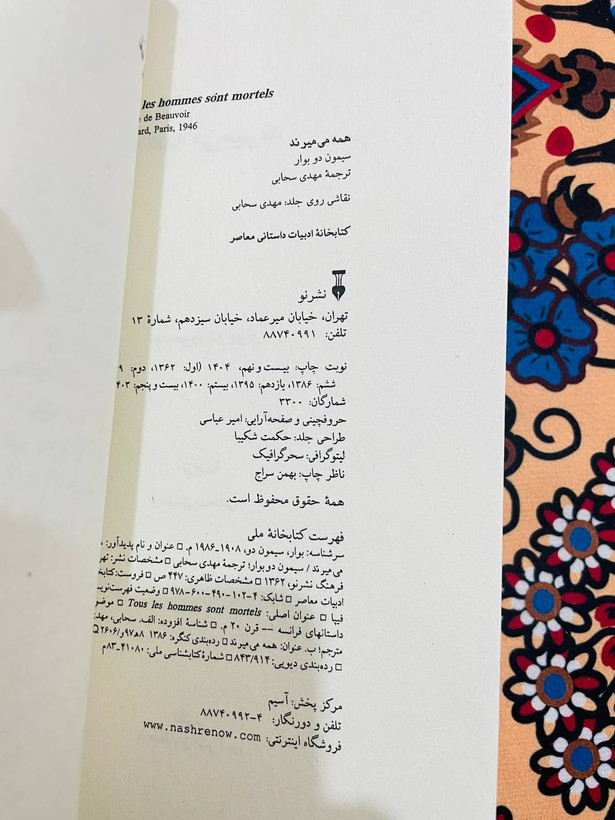 les hommes sont mortels
de Beauvoir
Paris, 1946
همه می‌میرند
سیمون دو بوار
ترجمهٔ مهدی سحابی
نقاشی روی جلد: مهدی سحابی
کتابخانهٔ ادبیات داستانی معاصر
نشرنو
تهران، خیابان میرعماد، خیابان سیزدهم، شمارهٔ ۱۳
تلفن: ۸۸۷۴۰۹۹۱
نوبت چاپ: بیست‌ونهم، ۱۴۰۴ (اول: ۱۳۶۲، دوم:
ششم: ۱۳۸۶، یازدهم: ۱۳۹۵، بیستم: ۱۴۰۰، بیست‌وپنجم:
شمارگان: ۳۳۰۰
حروفچینی و صفحه‌آرایی: امیر عباسی
طراحی جلد: حکمت شکیبا
لیتوگرافی: سحرگرافیک
ناظر چاپ: بهمن سراج
همهٔ حقوق محفوظ است.
فهرست کتابخانهٔ ملی
سرشناسه: بوار، سیمون دو، ۱۹۰۸-۱۹۸۶ م. □ عنوان و نام پدیدآور:
می‌میرند / سیمون دوبوار؛ ترجمهٔ مهدی سحابی □ مشخصات نشر:
فرهنگ نشرنو، ۱۳۶۲ □ مشخصات ظاهری: ۴۴۷ ص □ فروست:
ادبیات معاصر □ شابک: ۴-۱۰۲-۴۹۰-۶۰۰-۹۷۸ □ وضعیت
فیپا □ عنوان اصلی: Tous les hommes sont mortels □
داستانهای فرانسه -- قرن ۲۰ م. □ شناسهٔ افزوده: الف. سحابی،
مترجم؛ ب. عنوان: همه می‌میرند □ رده‌بندی کنگره: ۱۳۸۶
□ رده‌بندی دیویی: ۸۴۳/۹۱۴ □ شمارهٔ کتابشناسی ملی: ۴۱۰۸۰-۸۳م
مرکز پخش: آسیم
تلفن و دورنگار: ۴-۸۸۷۴۰۹۹۲
فروشگاه اینترنتی: www.nashrenow.com